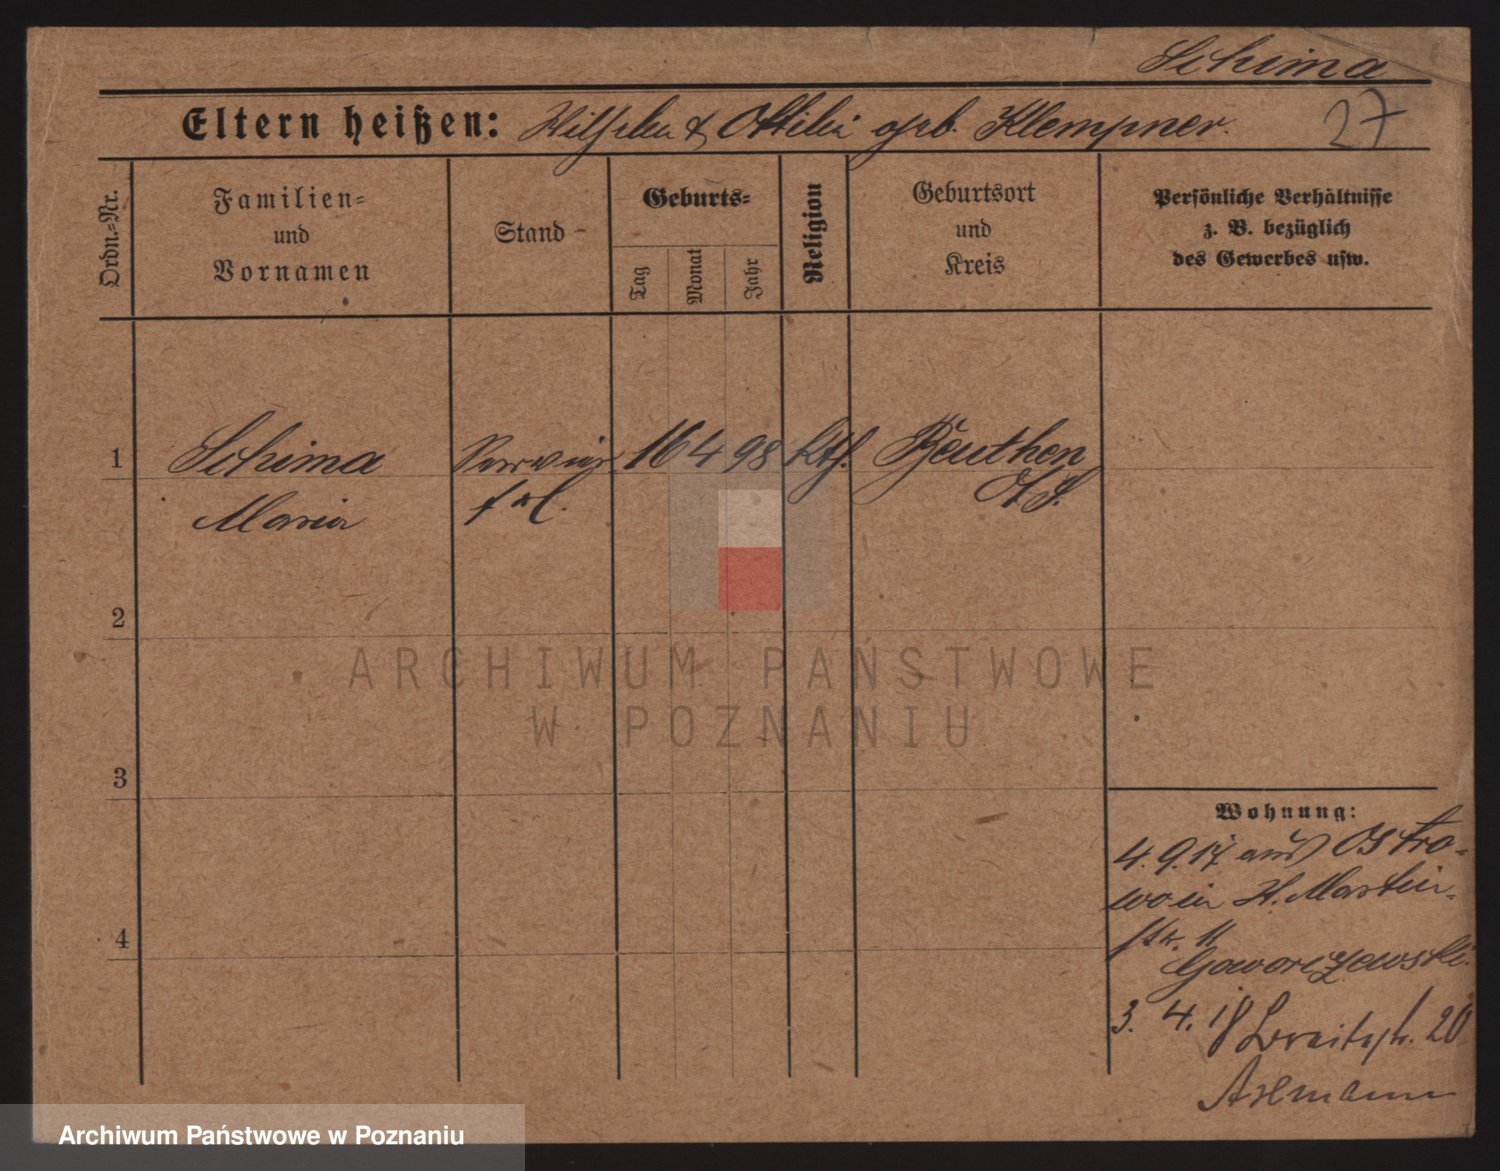 Schima
27
Eltern heißen: Wilhelm & Ottilie geb. Klempner.
Ordn.-Nr.
Familien-
und
Vornamen
Stand
Geburts-
Tag
Monat
Jahr
Religion
Geburtsort
und
Kreis
Persönliche Verhältnisse
z. B. bezüglich
des Gewerbes usw.
1
Schima
Maria
Servier
frl.
16 4 98
kth.
Beuthen
O/S.
2
3
4
Wohnung:
4. 9. 17 aus Ostro-
wo in St. Martin-
str. 11
3. 4. 18 Breitestr. 20
ARCHIWUM PAŃSTWOWE
W POZNANIU
Archiwum Państwowe w Poznaniu